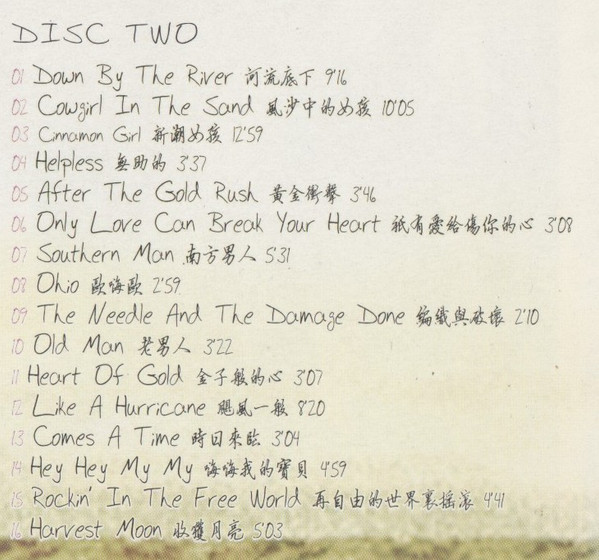 DISC TWO
01 Down By The River 河流底下 9'16
02 Cowgirl In The Sand 風沙中的女孩 10'05
03 Cinnamon Girl 新潮女孩 12'59
04 Helpless 無助的 3'37
05 After The Gold Rush 黃金衝擊 3'46
06 Only Love Can Break Your Heart 祇有愛給傷你的心 3'08
07 Southern Man 南方男人 5'31
08 Ohio 歐嗨歐 2'59
09 The Needle And The Damage Done 編織與破壞 2'10
10 Old Man 老男人 3'22
11 Heart Of Gold 金子般的心 3'07
12 Like A Hurricane 颶風一般 8'20
13 Comes A Time 時日來臨 3'04
14 Hey Hey My My 嗨嗨我的寶貝 4'59
15 Rockin' In The Free World 再自由的世界裏搖滾 4'41
16 Harvest Moon 收獲月亮 5'03